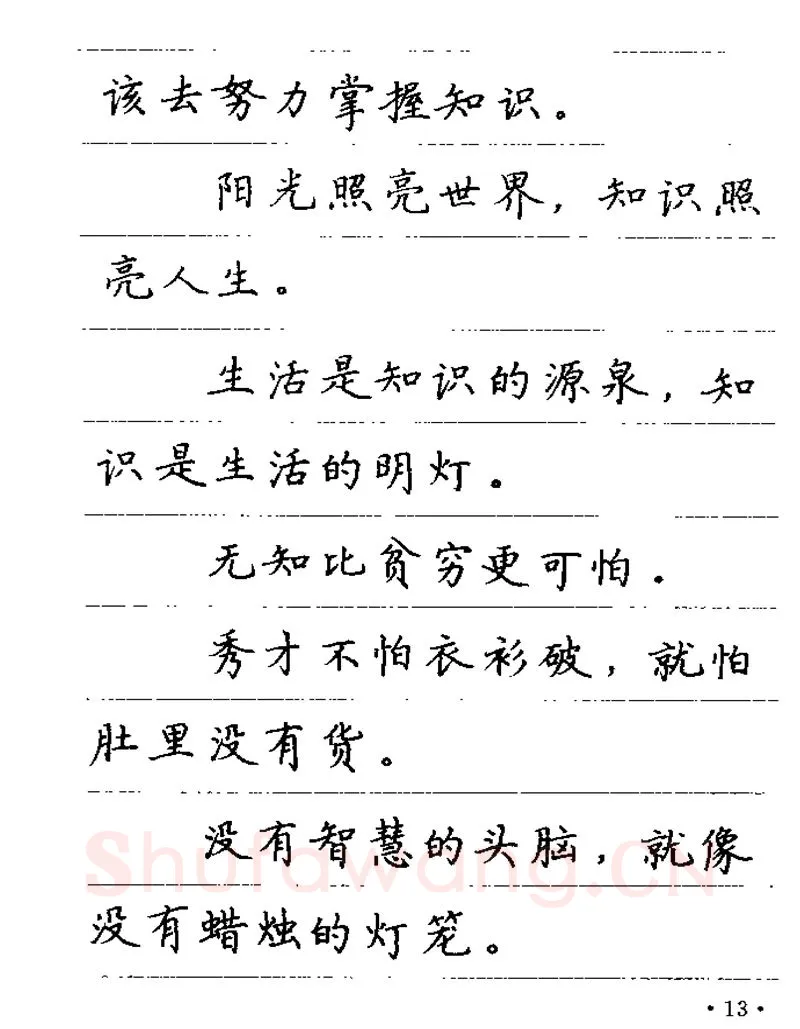 该去努力掌握知识。
阳光照亮世界，知识照
亮人生。
生活是知识的源泉，知
识是生活的明灯。
无知比贫穷更可怕.
秀才不怕衣衫破，就怕
肚里没有货。
没有智慧的头脑，就像
没有蜡烛的灯笼。
Shufawang.CN
·13·